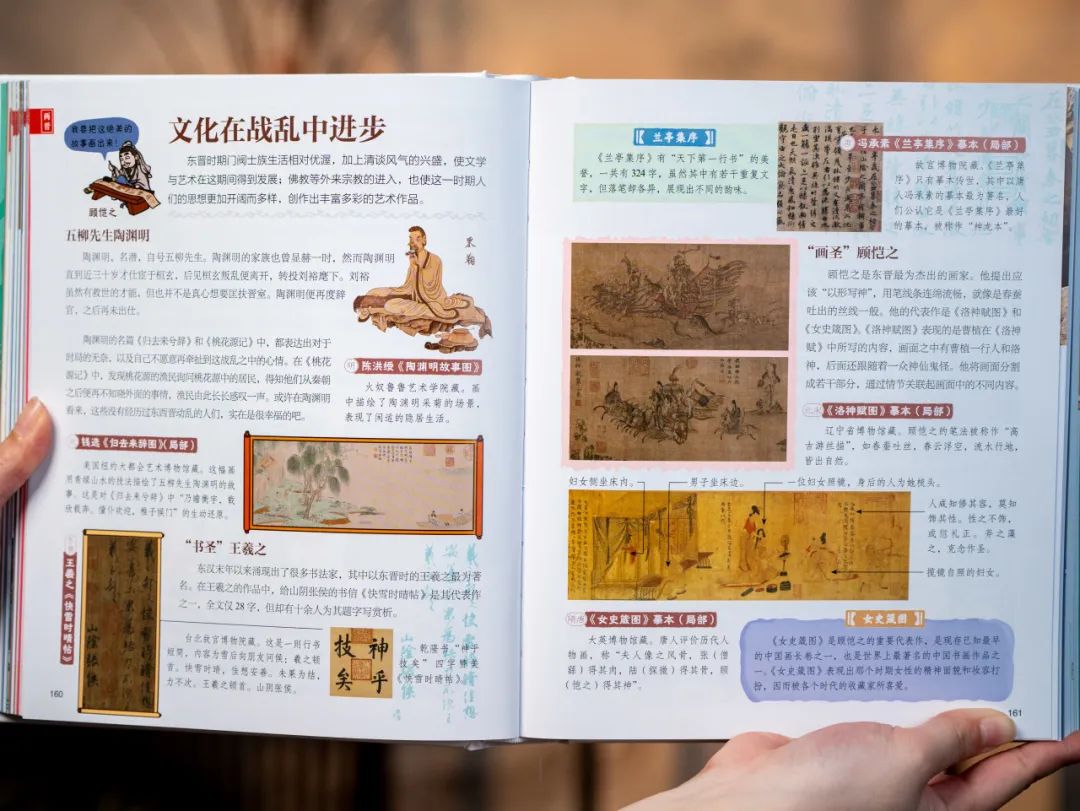 两晋
我要把这绝美的
故事画出来！
顾恺之
文化在战乱中进步
东晋时期门阀士族生活相对优渥，加上清谈风气的兴盛，使文学
与艺术在这期间得到发展；佛教等外来宗教的进入，也使这一时期人
们的思想更加开阔而多样，创作出丰富多彩的艺术作品。
五柳先生陶渊明
陶渊明，名潜，自号五柳先生。陶渊明的家族也曾显赫一时，然而陶渊明
直到近三十岁才仕宦于桓玄，后见桓玄叛乱便离开，转投刘裕麾下。刘裕
虽然有救世的才能，但也并不是真心想要匡扶晋室。陶渊明便再度辞
官，之后再未出仕。
陶渊明的名篇《归去来兮辞》和《桃花源记》中，都表达出对于
时局的无奈，以及自己不愿意再牵扯到这战乱之中的心情。在《桃花
源记》中，发现桃花源的渔民询问桃花源中的居民，得知他们从秦朝
之后便再不知晓外面的事情，渔民由此长长感叹一声。或许在陶渊明
看来，这些没有经历过东西晋动乱的人们，实在是很幸福的吧。
明
陈洪绶《陶渊明故事图》
火奴鲁鲁艺术学院藏。画
中描绘了陶渊明采菊的场景，
表现了闲适的隐居生活。
钱选《归去来辞图》（局部）
美国纽约大都会艺术博物馆藏。这幅画
用青绿山水的技法描绘了五柳先生陶渊明的故
事。这是对《归去来兮辞》中“乃瞻衡宇，载
欣载奔。僮仆欢迎，稚子候门”的生动还原。
王羲之《快雪时晴帖》
“书圣”王羲之
东汉末年以来涌现出了很多书法家，其中以东晋时的王羲之最为著
名。在王羲之的作品中，给山阴张侯的书信《快雪时晴帖》是其代表作
之一，全文仅 28 字，但却有十余人为其题字写赏析。
台北故宫博物院藏。这是一则行书
短简，内容为雪后向朋友问候：羲之顿
首。快雪时晴，佳想安善。未果为结，
力不次。王羲之顿首。山阴张侯。
神乎
技矣
乾隆书“神乎
技矣”四字赞美
《快雪时晴帖》。
160
兰亭集序
《兰亭集序》有“天下第一行书”的美
誉，一共有 324 字，虽然其中有若干重复文
字，但落笔却各异，展现出不同的韵味。
唐
冯承素《兰亭集序》摹本（局部）
故宫博物院藏。《兰亭集
序》只有摹本传世，其中以唐
人冯承素的摹本最为著名，人
们公认它是《兰亭集序》最好
的摹本，被称作“神龙本”。
“画圣”顾恺之
顾恺之是东晋最为杰出的画家。他提出应
该“以形写神”，用笔线条连绵流畅，就像是春蚕
吐出的丝线一般。他的代表作是《洛神赋图》和
《女史箴图》。《洛神赋图》表现的是曹植在《洛神
赋》中所写的内容，画面之中有曹植一行人和洛
神，后面还跟随着一众神仙鬼怪。他将画面分割
成若干部分，通过情节关联起画面中的不同内容。
北宋
《洛神赋图》摹本（局部）
辽宁省博物馆藏。顾恺之的笔法被称作“高
古游丝描”，如春蚕吐丝，春云浮空，流水行地，
皆出自然。
妇女侧坐床内。
男子坐床边。
一位妇女照镜，身后的人为她梳头。
人咸知修其容，莫知
饰其性。性之不饰，
或愆礼正。斧之藻
之，克念作圣。
揽镜自照的妇女。
隋唐
《女史箴图》摹本（局部）
大英博物馆藏。唐人评价历代人
物画，称“夫人像之风骨，张（僧
繇）得其肉，陆（探微）得其骨，顾
（恺之）得其神”。
女史箴图
《女史箴图》是顾恺之的重要代表作，是现存已知最早
的中国画长卷之一，也是世界上最著名的中国书画作品之
一。《女史箴图》表现出那个时期女性的精神面貌和妆容打
扮，因而被各个时代的收藏家所喜爱。
161